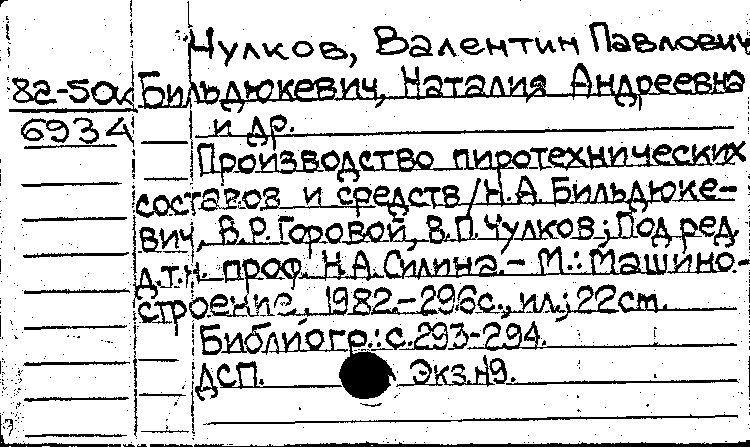 Чулков, Валентин Павлович
82-50к Бильдюкевич, Наталия Андреевна
6934 и др.
Производство пиротехнических
составов и средств/Н.А. Бильдюке-
вич, В.Р. Горовой, В.П. Чулков; Под ред.
д.т.н. проф. Н.А. Силина.- М.: Машино-
строение, 1982.-296с., ил.; 22 см.
Библиогр.: с.293-294.
ДСП. Экз.№9.